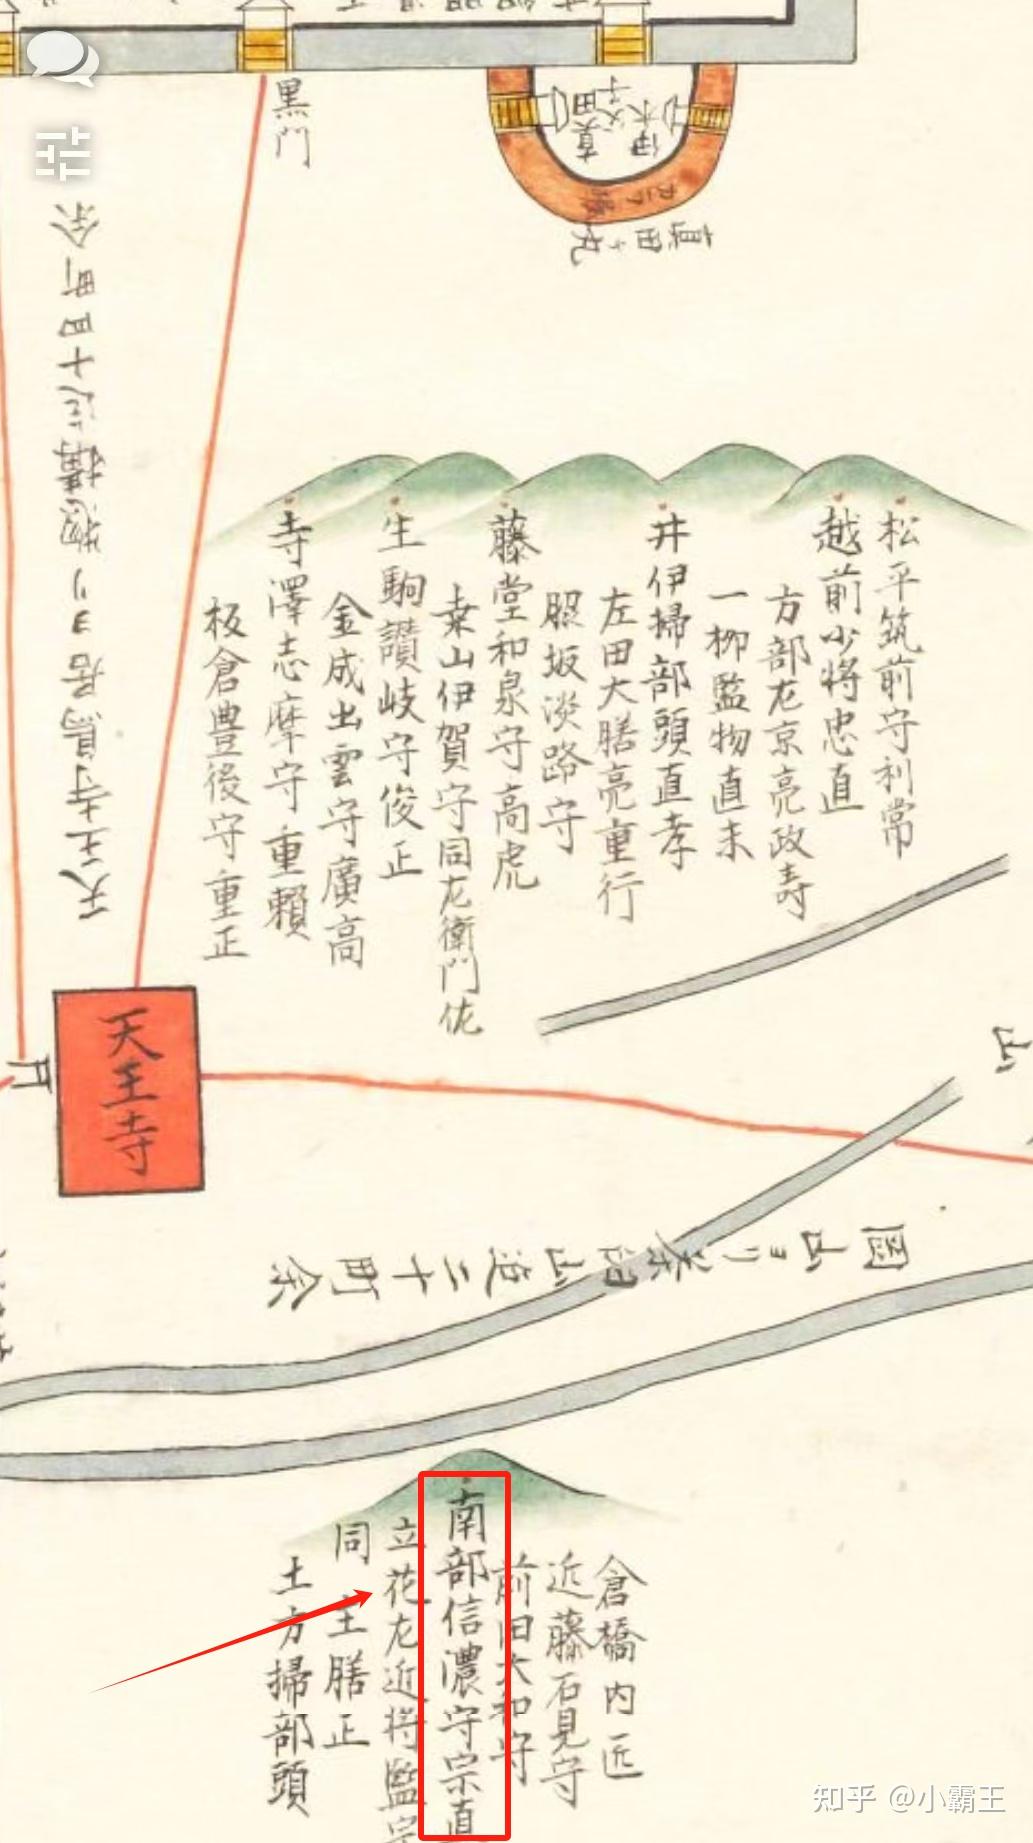 黒門
真田
伊木
父子
真田
丸
松平筑前守利常
越前少将忠直
方部左京亮政寿
一柳監物直末
井伊掃部頭直孝
左田大膳亮重行
照坂淡路守
藤堂和泉守高虎
桒山伊賀守同左衛門佐
生駒讃岐守俊正
金成出雲守廣高
寺澤志摩守重頼
板倉豊後守重正
天王寺鳥居ヨリ惣構迄十四町余
天王寺
山
岡山ヨリ茶臼山迄二十町余
倉橋内匠
近藤石見守
前田大和守
南部信濃守宗直
立花左近将監宗
同主膳正
土方掃部頭
知乎 @小霸王